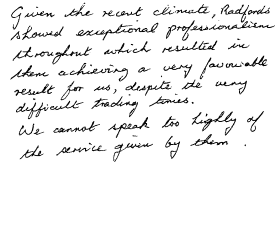 Given the recent climate, Radfords
showed exceptional professionalism
throughout which resulted in
them achieving a very favourable
result for us, despite the very
difficult trading times.
We cannot speak too highly of
the service given by them.